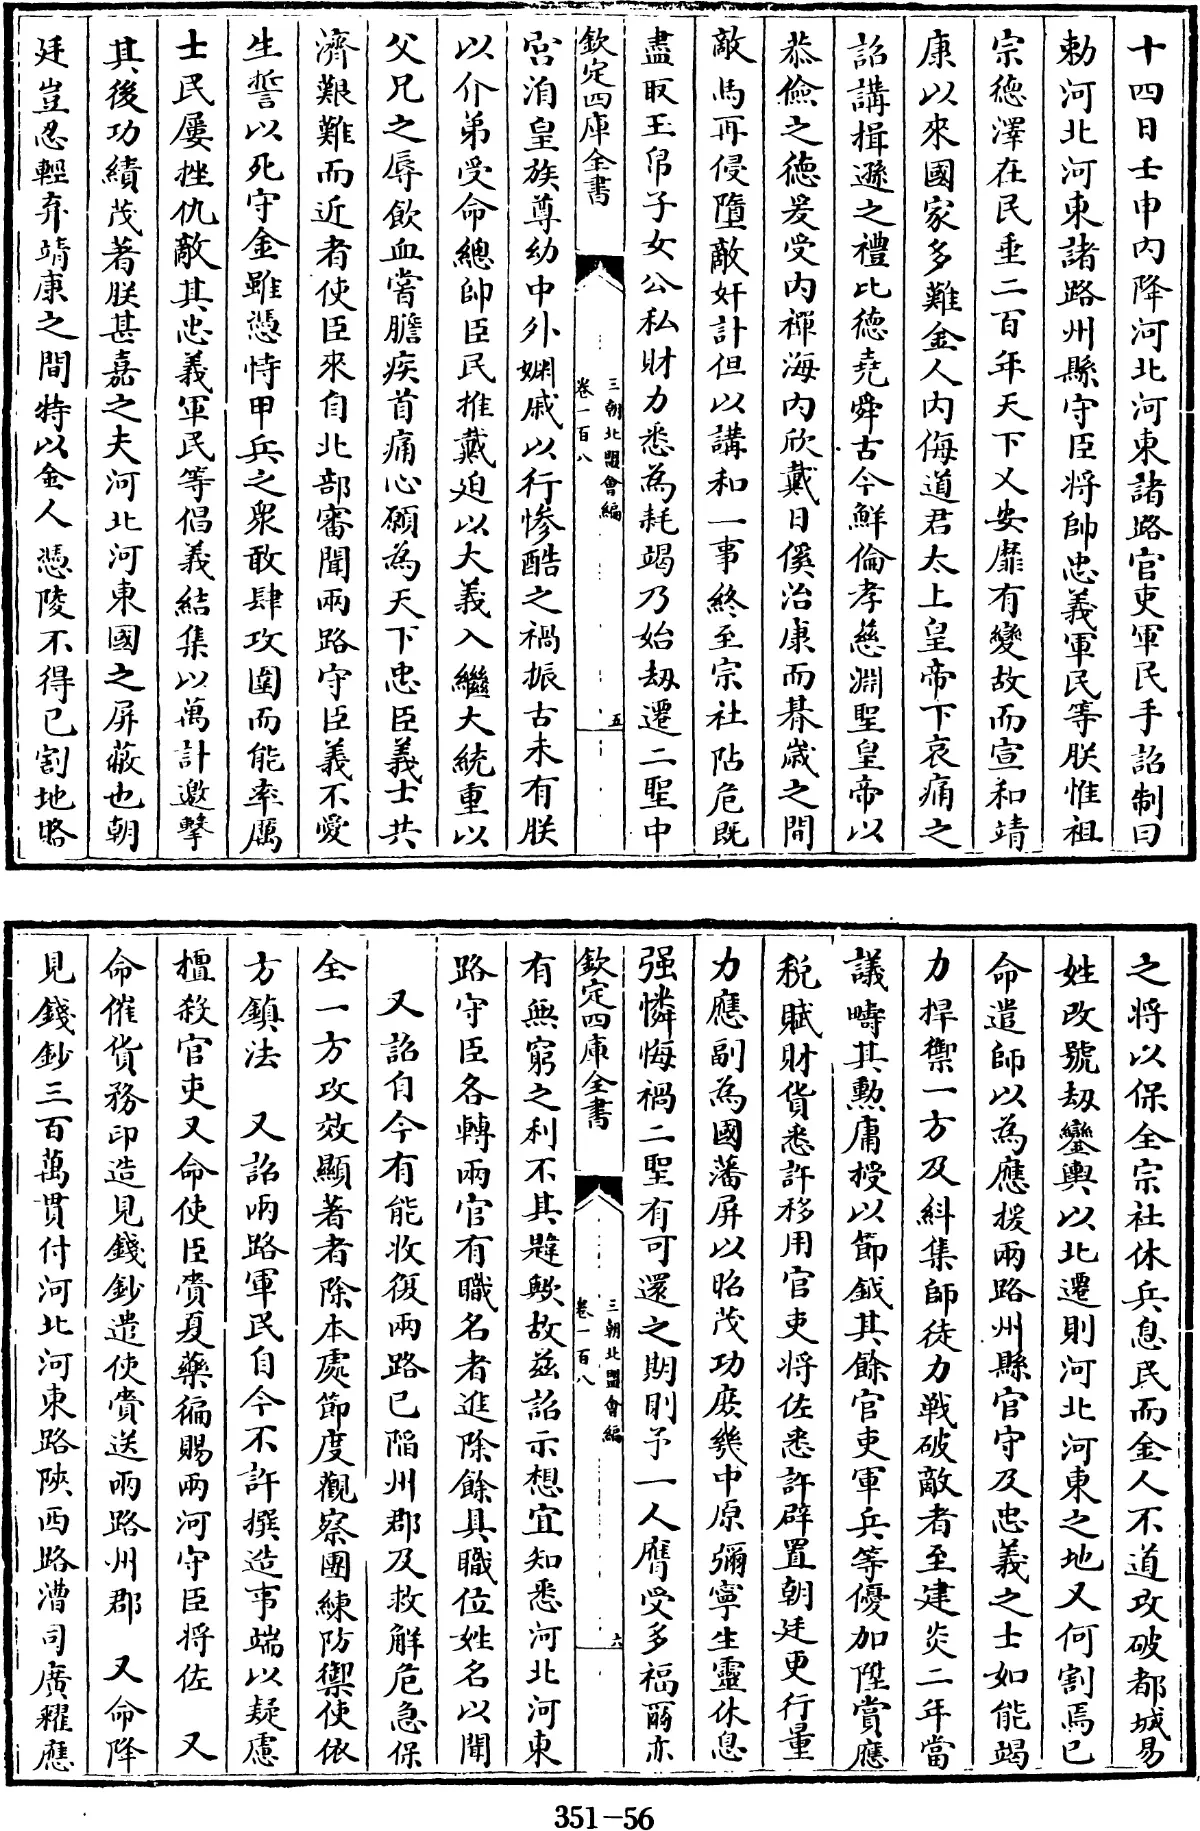 十四日壬申内降河北河東諸路官吏軍民手詔制曰
勅河北河東諸路州縣守臣將帥忠義軍民等朕惟祖
宗德澤在民垂二百年天下乂安靡有變故而宣和靖
康以來國家多難金人内侮道君太上皇帝下哀痛之
詔講揖遜之禮比德堯舜古今鮮倫孝慈淵聖皇帝以
恭儉之德爰受内禪海内欣戴日傒治康而朞歲之間
敵馬再侵墮敵奸計但以講和一事終至宗社阽危既
盡取玉帛子女公私財力悉為耗竭乃始刼遷二聖中
欽定四庫全書
三朝北盟會編
卷一百八
五
宫洎皇族尊幼中外婣戚以行慘酷之禍振古未有朕
以介弟受命總帥臣民推戴廹以大義入繼大統重以
父兄之辱飲血嘗膽疾首痛心願為天下忠臣義士共
濟艱難而近者使臣來自北部審聞兩路守臣義不愛
生誓以死守金雖憑恃甲兵之衆敢肆攻圍而能率厲
士民屢挫仇敵其忠義軍民等倡義結集以萬計邀擊
其後功績茂著朕甚嘉之夫河北河東國之屏蔽也朝
廷豈忍輕弃靖康之間特以金人憑陵不得已割地賂
之將以保全宗社休兵息民而金人不道攻破都城易
姓改號刼鑾輿以北遷則河北河東之地又何割焉已
命遣師以為應援兩路州縣官守及忠義之士如能竭
力捍禦一方及糾集師徒力戰破敵者至建炎二年當
議疇其勲庸授以節鉞其餘官吏軍兵等優加陞賞應
稅賦財貨悉許移用官吏將佐悉許辟置朝廷更行量
力應副為國藩屏以昭茂功庻幾中原彌寧生靈休息
强憐悔禍二聖有可還之期則予一人膺受多福爾亦
欽定四庫全書
三朝北盟會編
卷一百八
六
有無窮之利不其韙歟故兹詔示想宜知悉河北河東
路守臣各轉兩官有職名者進除餘具職位姓名以聞
又詔自今有能收復兩路已陷州郡及救解危急保
全一方攻效顯著者除本處節度觀察團練防禦使依
方鎮法　又詔兩路軍民自今不許撰造事端以疑慮
擅殺官吏又命使臣賫夏藥徧賜兩河守臣將佐　又
命催貨務印造見錢鈔遣使賫送兩路州郡　又命降
見錢鈔三百萬貫付河北河東路陜西路漕司廣糴應
351-56